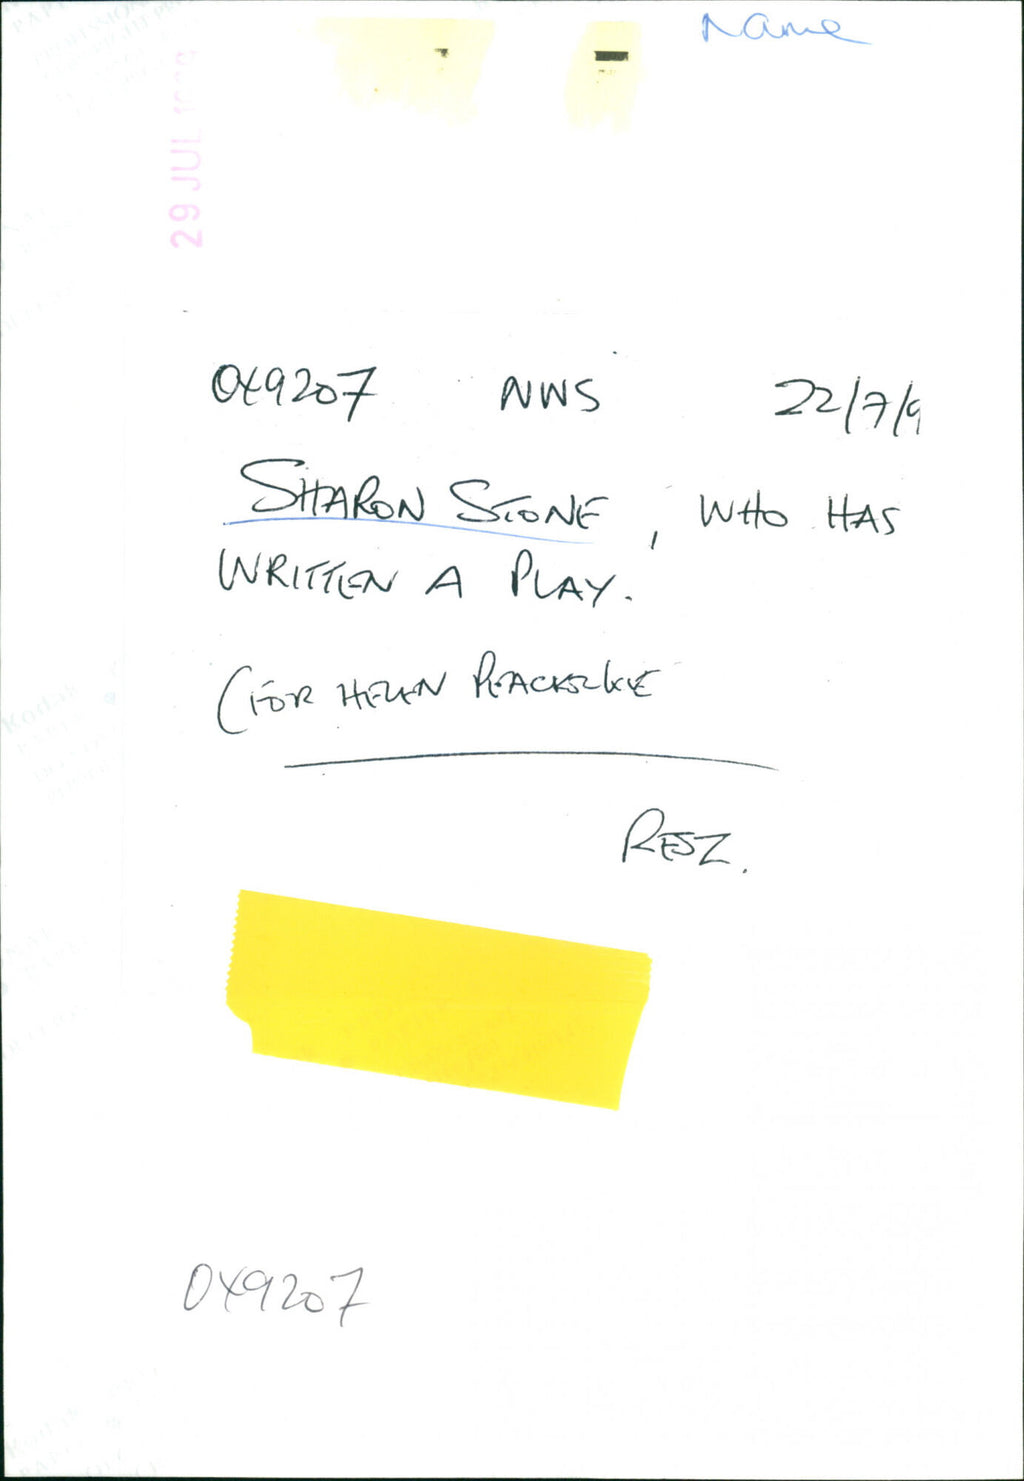 Name
29 JUL
OX9207 NWS 22/7/9
SHARON STONE, WHO HAS
WRITTEN A PLAY.
(FOR HELEN
REJZ.
OX9207